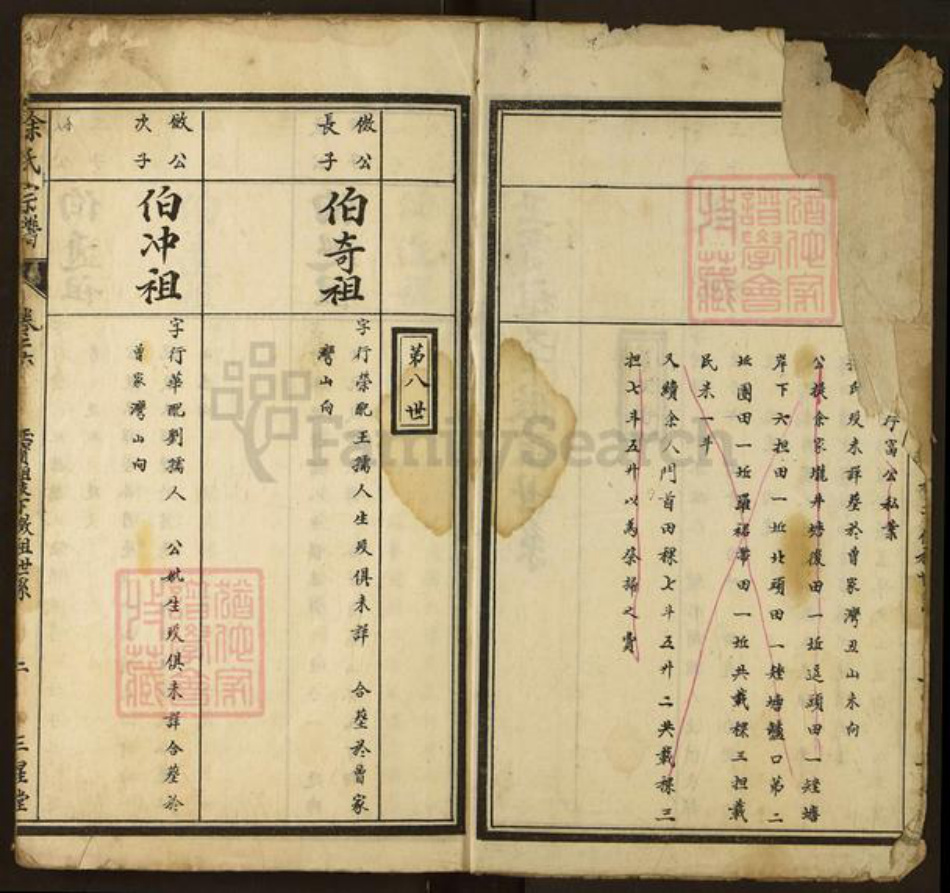 行富公私業
氏歿未詳塟於曾家灣丑山未向
公撥余家壠井塘復田一坵逗頭田一坵塘
岸下六担田一坵北頭田一坵塘墟口第二
坵團田一坵羅裙帶田一坵共載稞三担載
民米一斗
又續余人門首田稞七斗五升二共載稞三
担七斗五升以為祭掃之費
遺產家譜學會收藏
第八世
儆公長子
伯奇祖
字行榮配王孺人生歿俱未詳 合塟於曾家
灣山向
儆公次子
伯冲祖
字行華配劉孺人 公妣生歿俱未詳合塟於
曾家灣山向
徐氏宗譜
卷二六
二
三星堂
FamilySearch